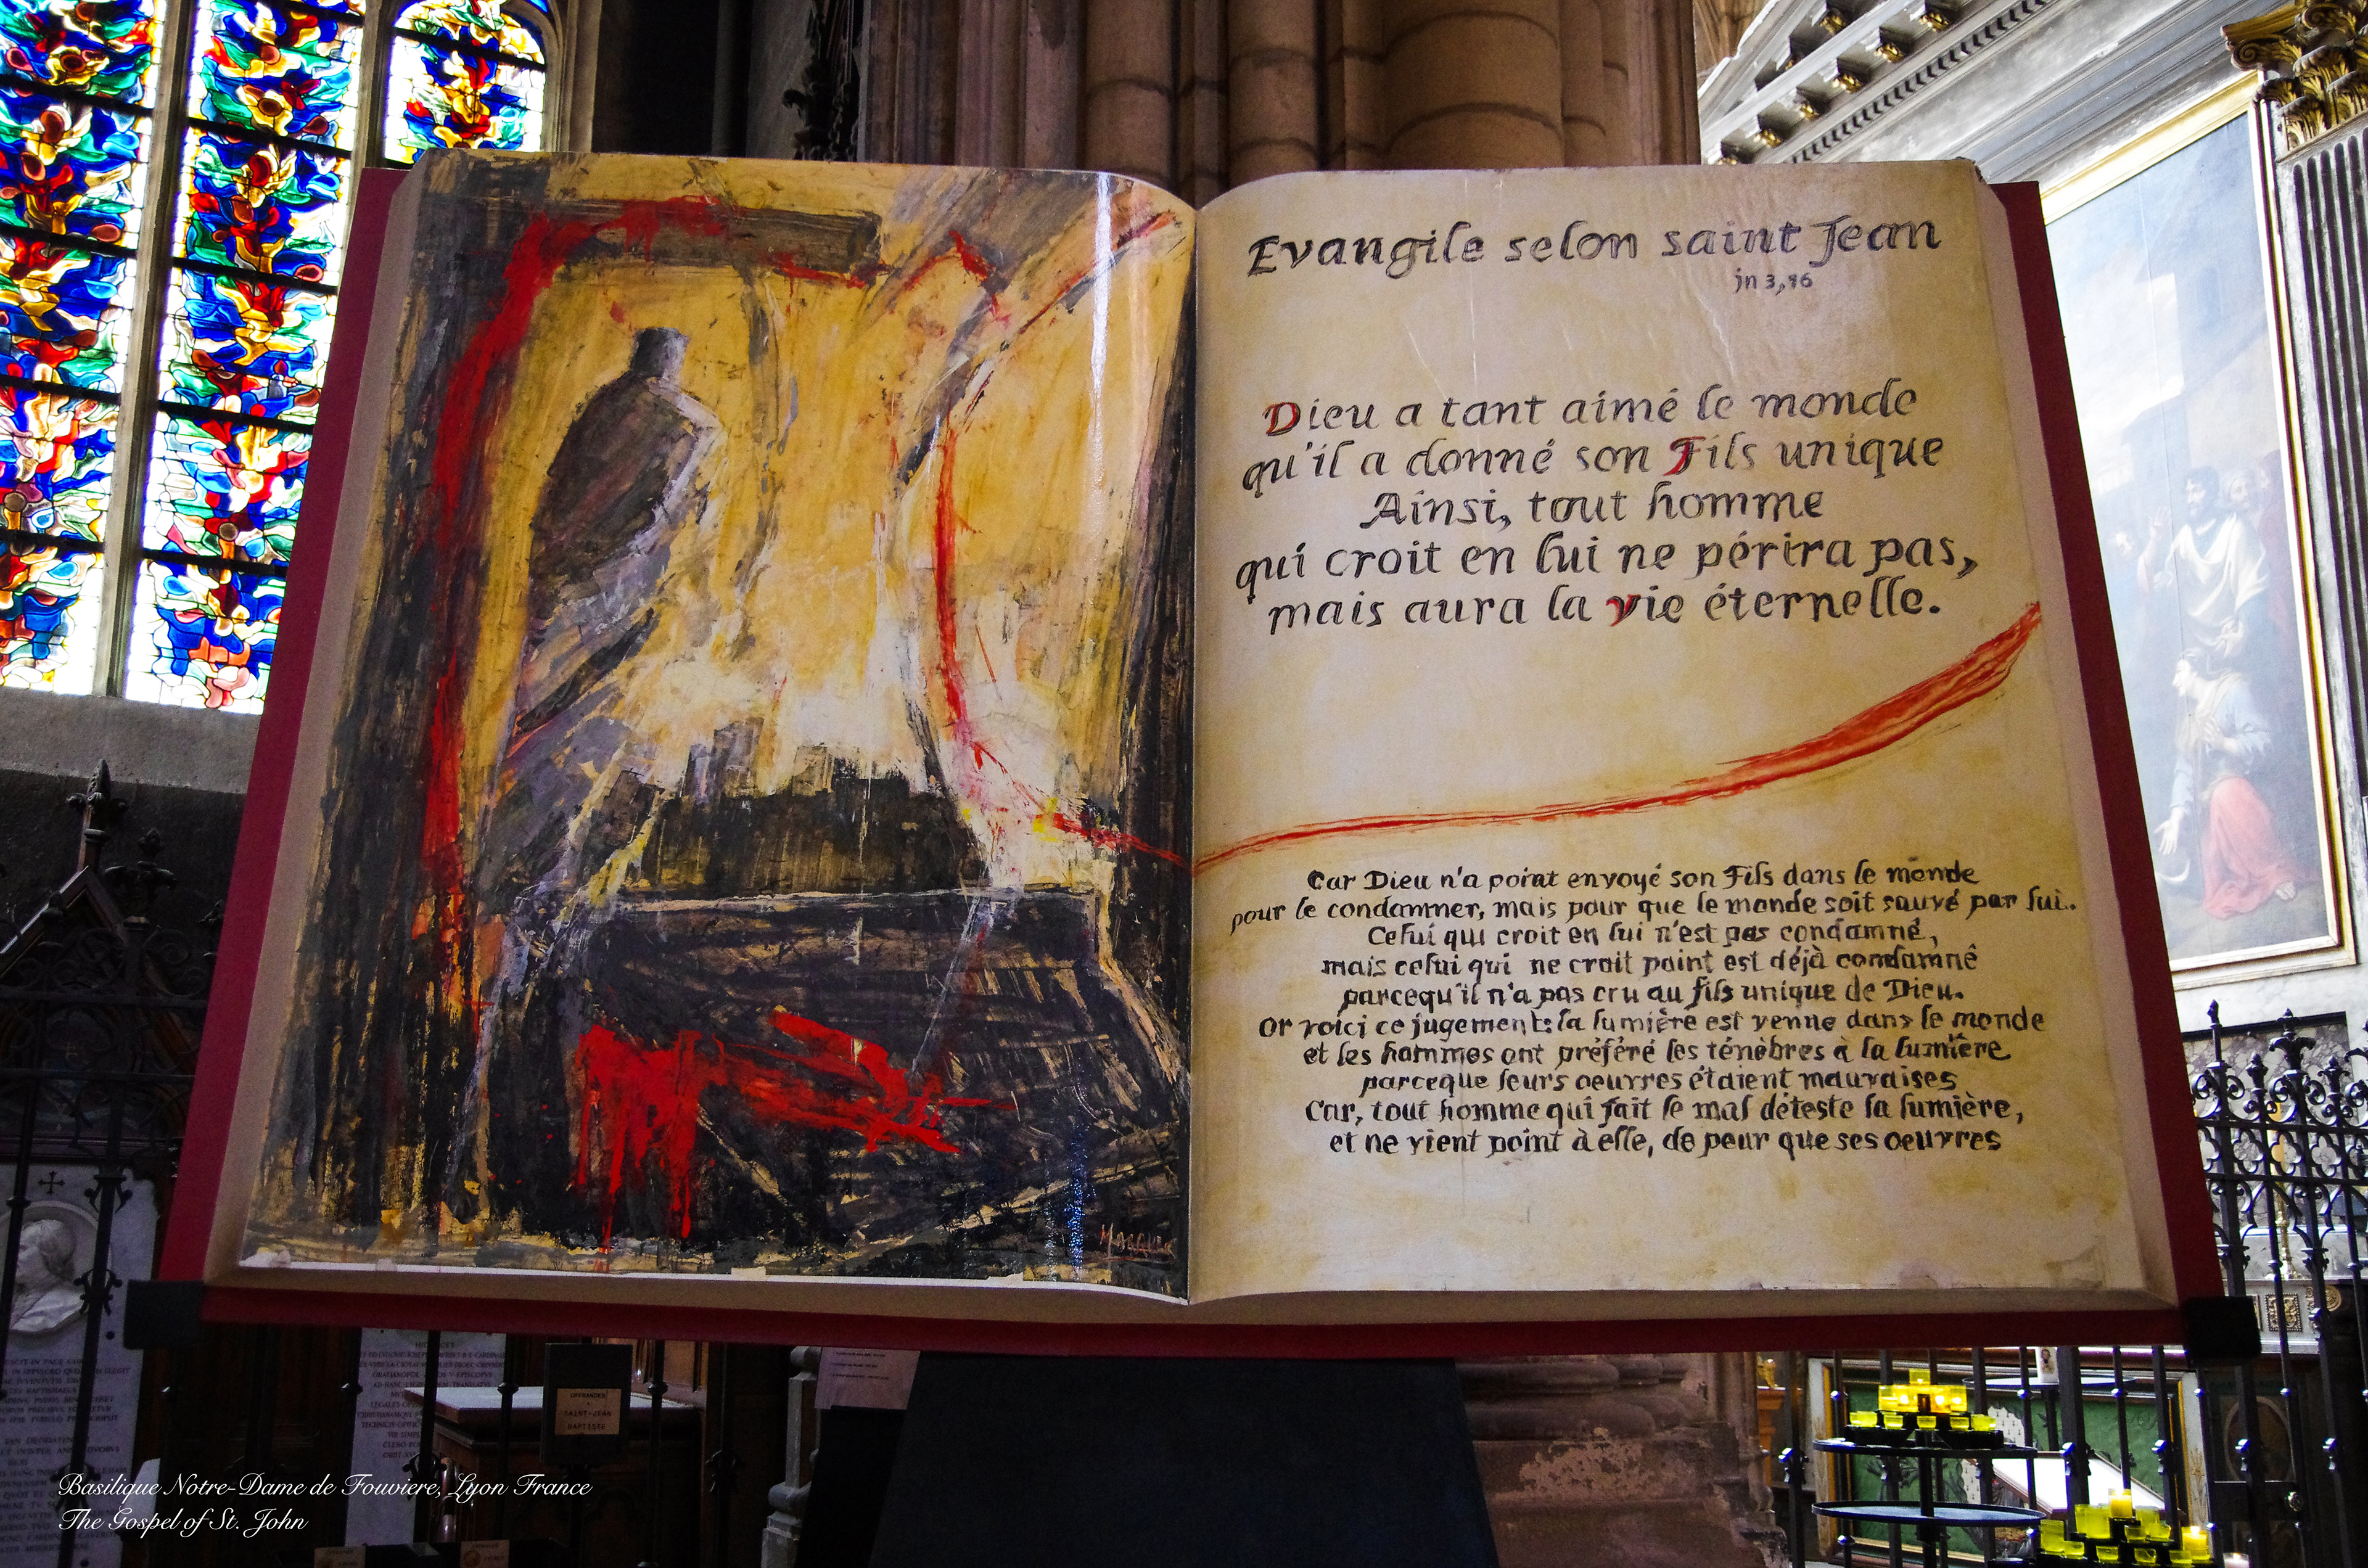 Evangile selon saint Jean
jn 3,16
Dieu a tant aimé le monde
qu'il a donné son Fils unique
Ainsi, tout homme
qui croit en lui ne périra pas,
mais aura la vie éternelle.
Car Dieu n'a point envoyé son Fils dans le monde
pour le condamner, mais pour que le monde soit sauvé par lui.
Celui qui croit en lui n'est pas condamné,
mais celui qui ne croit point est déjà condamné
parcequ'il n'a pas cru au fils unique de Dieu.
Or voici ce jugement: la lumière est venue dans le monde
et les hommes ont préféré les ténèbres à la lumière
parceque leurs oeuvres étaient mauvaises
Car, tout homme qui fait le mal déteste la lumière,
et ne vient point à elle, de peur que ses oeuvres
OFFRANDES
SAINT-JEAN
BAPTISTE
Basilique Notre-Dame de Fouviere, Lyon France
The Gospel of St. John